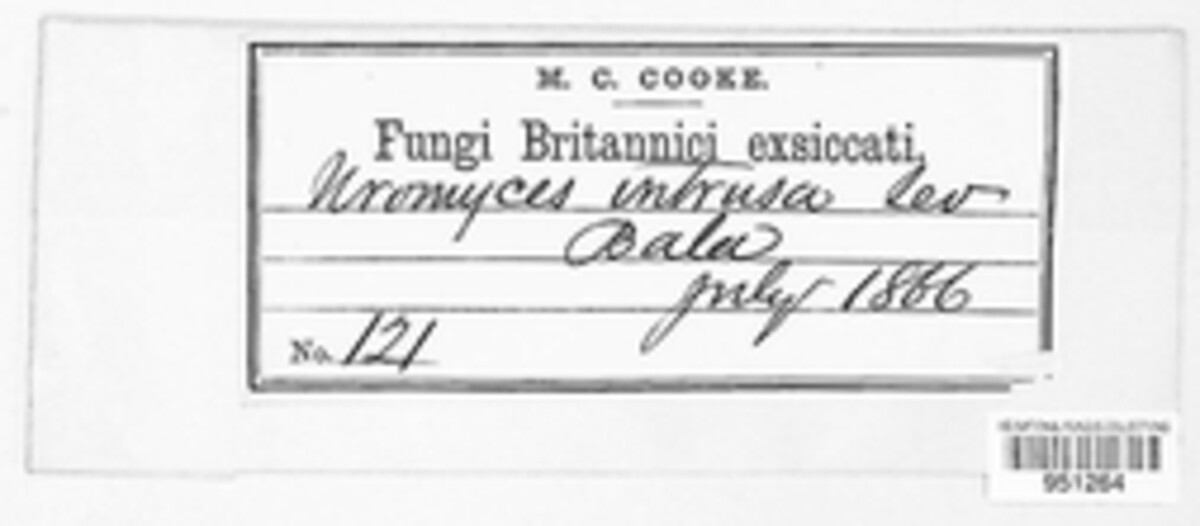 M. C. COOKE.
Fungi Britannici exsiccati,
Uromyces intrusa Lev
Bala
July 1866
No. 121
951264